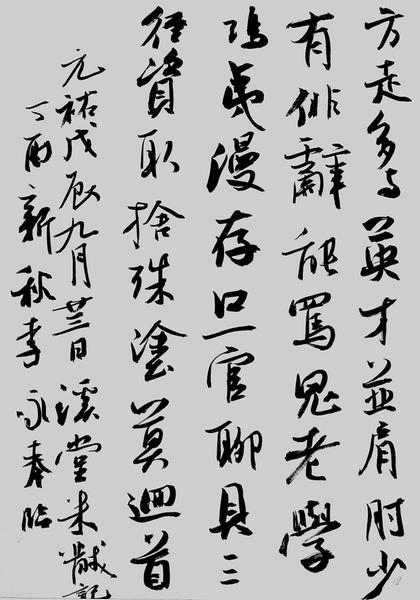 方走多与英才並肩肘少
有俳辭能罵鬼老學
鴟夷漫存口一官聊具三
徑資取捨殊塗莫迴首
元祐戊辰九月廿三日溪堂米黻記
丁酉新秋李永奉臨